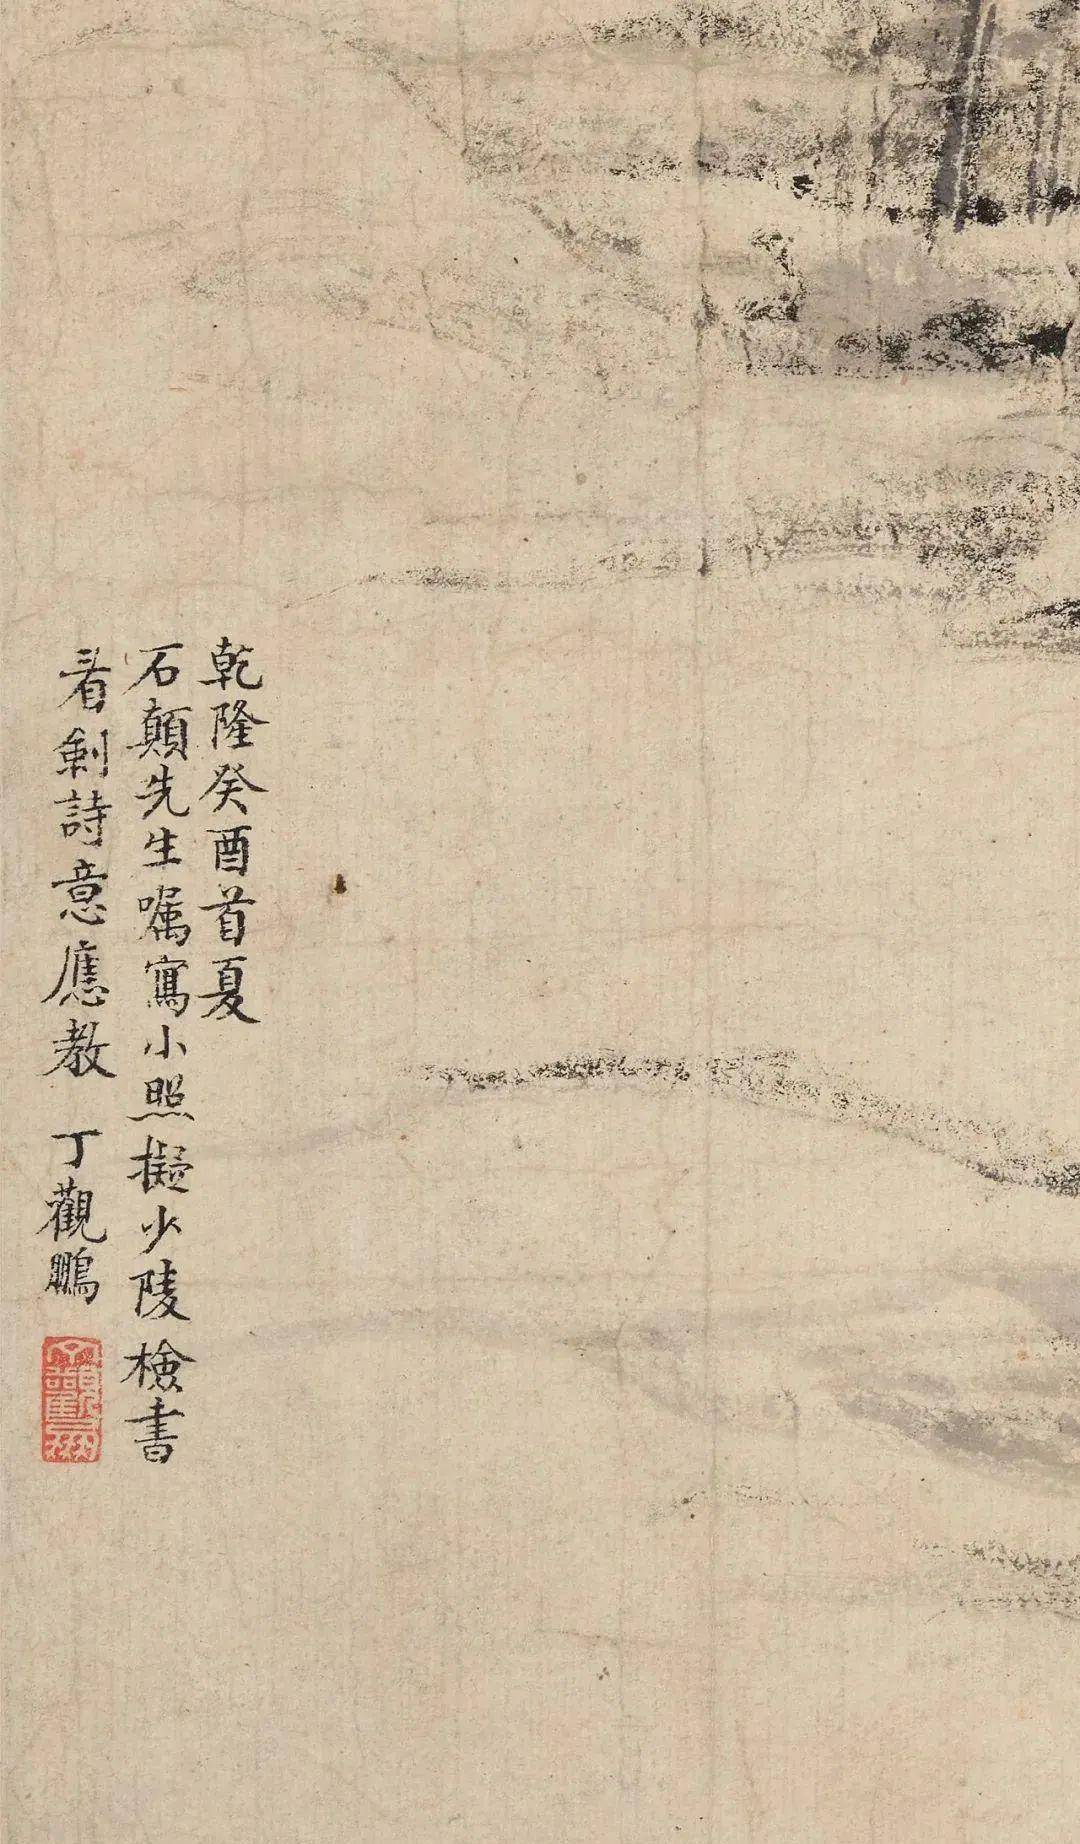 乾隆癸酉首夏
石顛先生囑寫小照擬少陵檢書
看劍詩意應教 丁觀鵬